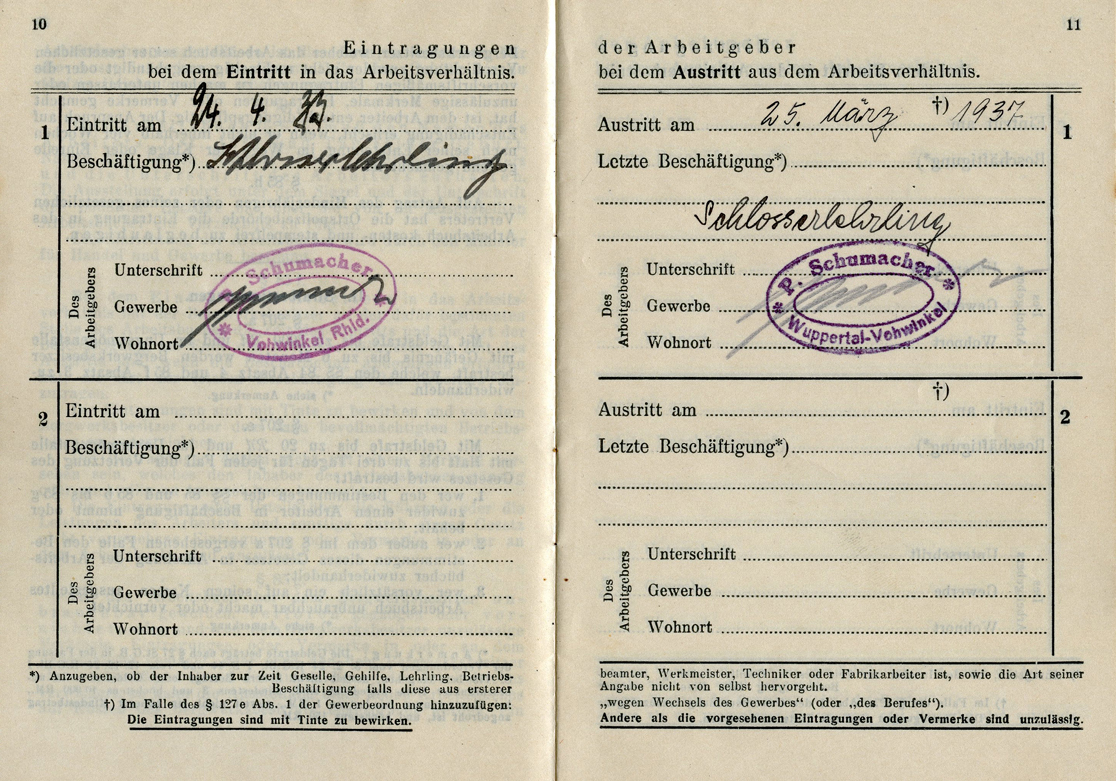 10
Eintragungen
bei dem Eintritt in das Arbeitsverhältnis.
1
Eintritt am 24. 4. 33.
Beschäftigung*) Schlosserlehrling
Des Arbeitgebers
Unterschrift
Gewerbe
Wohnort
P. Schumacher
* *
Vohwinkel Rhld.
2
Eintritt am
Beschäftigung*)
Des Arbeitgebers
Unterschrift
Gewerbe
Wohnort
*) Anzugeben, ob der Inhaber zur Zeit Geselle, Gehilfe, Lehrling, Betriebs-
Beschäftigung falls diese aus ersterer
†) Im Falle des § 127e Abs. 1 der Gewerbeordnung hinzuzufügen:
Die Eintragungen sind mit Tinte zu bewirken.
11
der Arbeitgeber
bei dem Austritt aus dem Arbeitsverhältnis.
1
Austritt am 25. März †) 1937
Letzte Beschäftigung*)
Schlosserlehrling
Des Arbeitgebers
Unterschrift
Gewerbe
Wohnort
* P. Schumacher *
Wuppertal-Vohwinkel
2
Austritt am †)
Letzte Beschäftigung*)
Des Arbeitgebers
Unterschrift
Gewerbe
Wohnort
beamter, Werkmeister, Techniker oder Fabrikarbeiter ist, sowie die Art seiner
Angabe nicht von selbst hervorgeht.
„wegen Wechsels des Gewerbes“ (oder „des Berufes“).
Andere als die vorgesehenen Eintragungen oder Vermerke sind unzulässig.